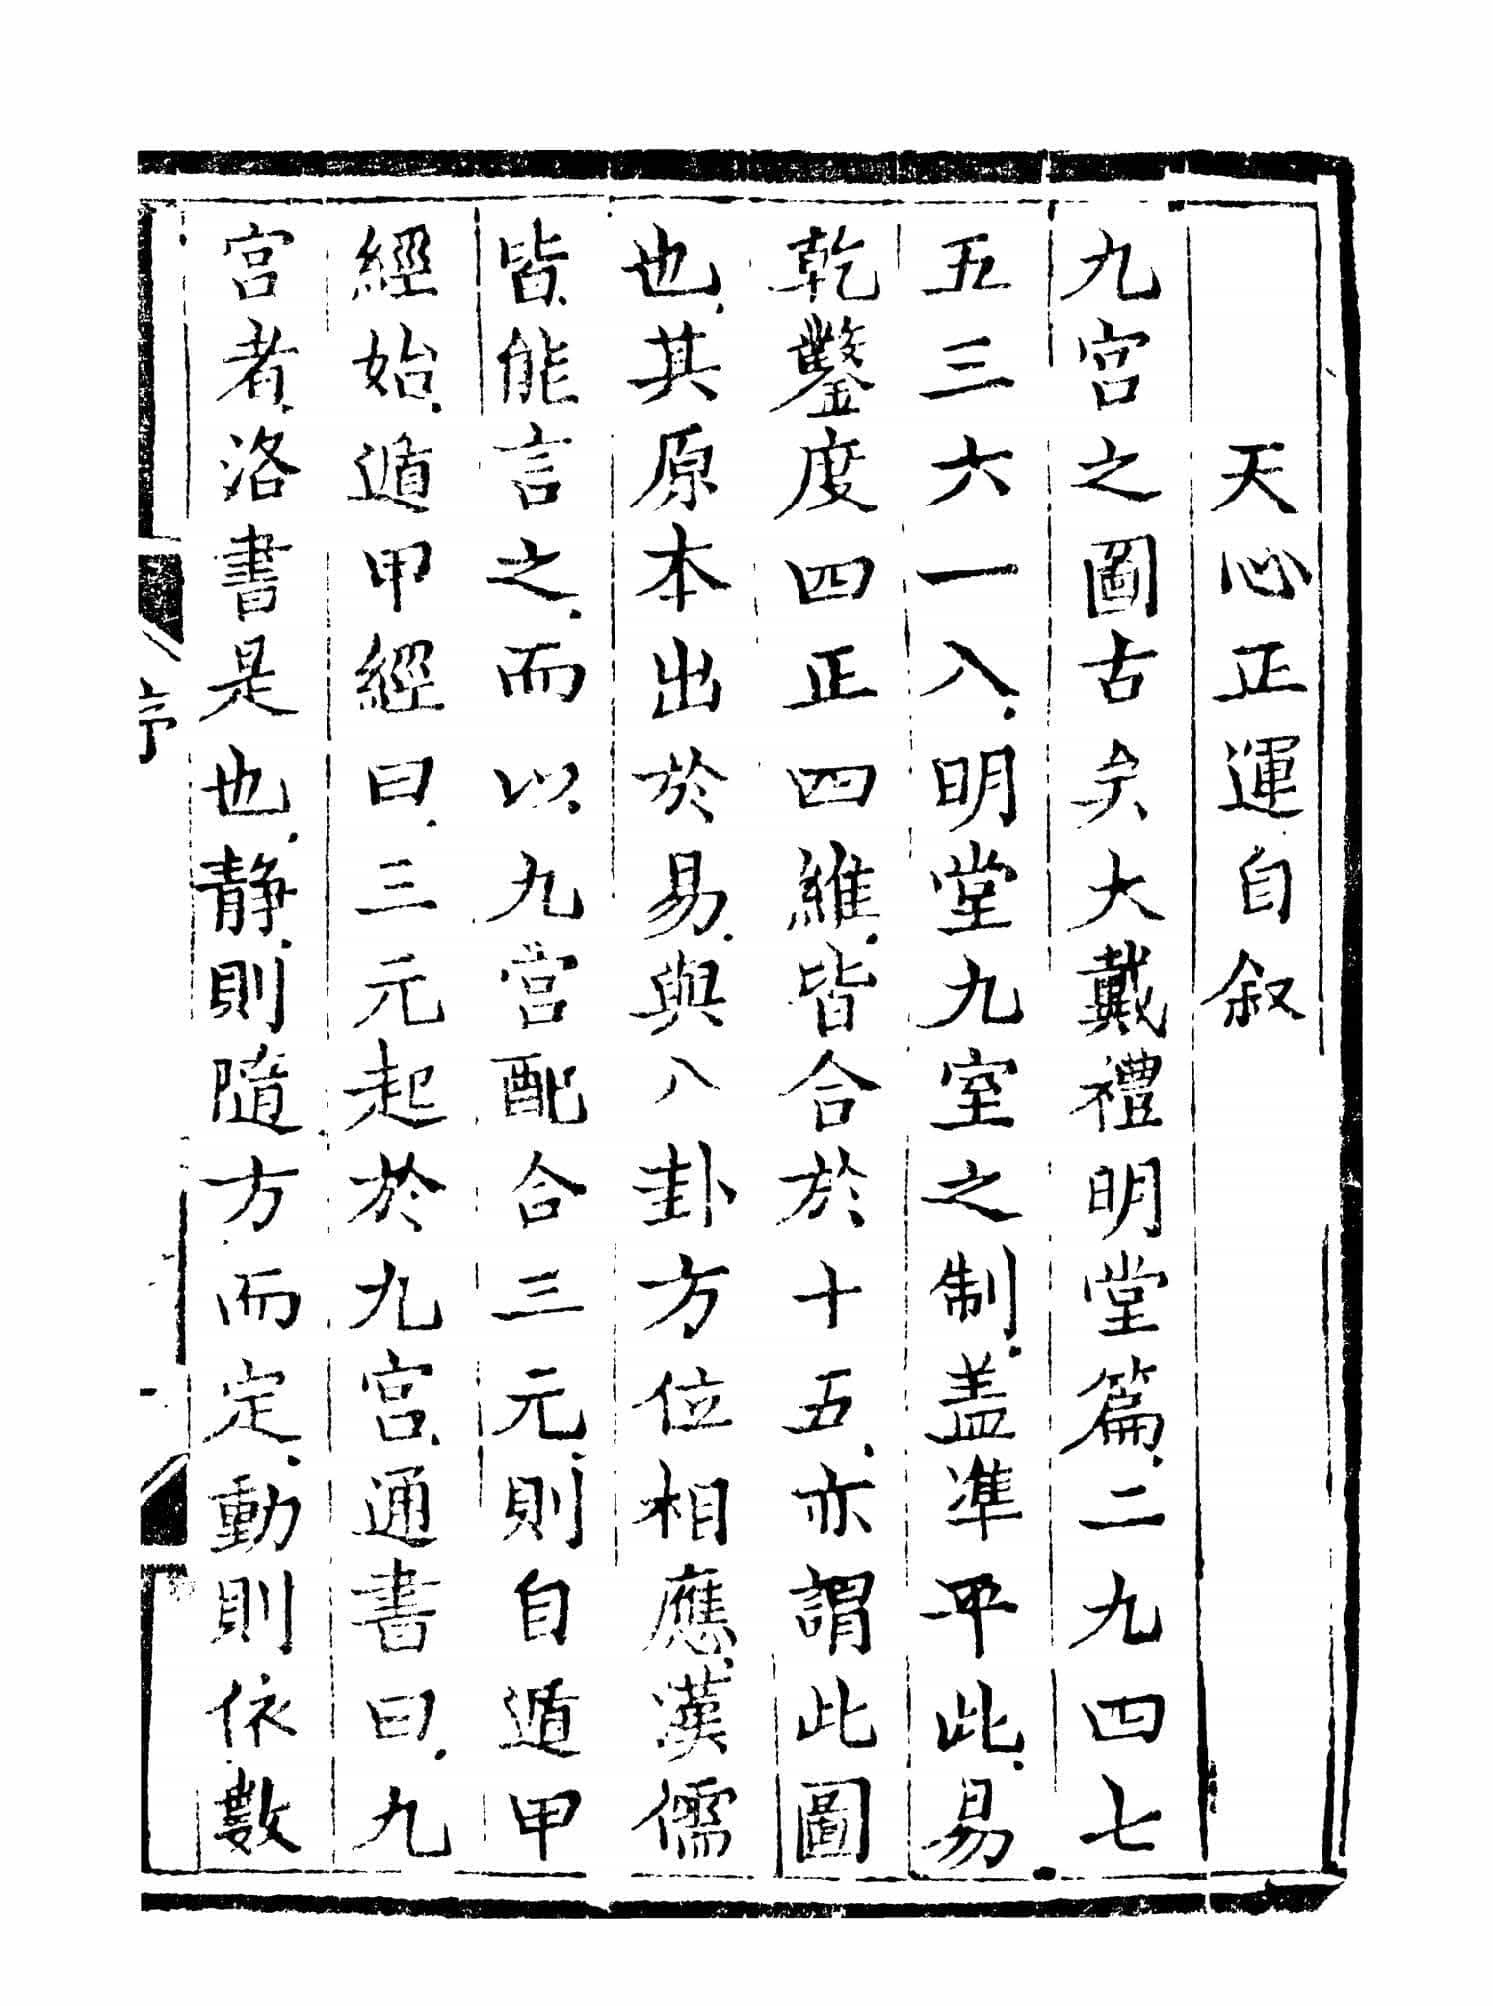 天心正運自叙
九宮之圖古矣大戴禮明堂篇二九四七
五三六一八明堂九室之制盖準平此易
乾鑿度四正四維皆合於十五亦謂此圖
也其原本出於易與八卦方位相應漢儒
皆能言之而以九宮配合三元則自遁甲
經始遁甲經曰三元起於九宮通書曰九
宮者洛書是也静則隨方而定動則依數
序